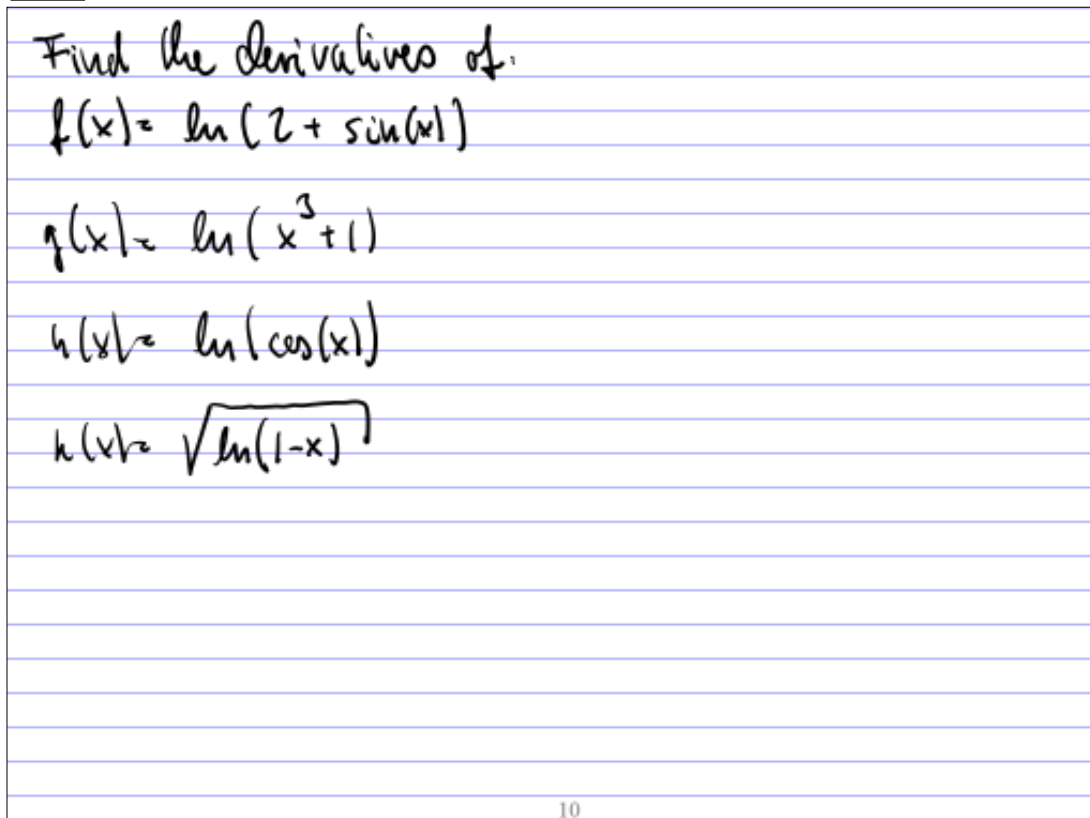 Find the derivatives of:
f(x) = ln(2 + sin(x))
g(x) = ln(x³+1)
h(x) = ln(cos(x))
h(x) = √ln(1-x)
10